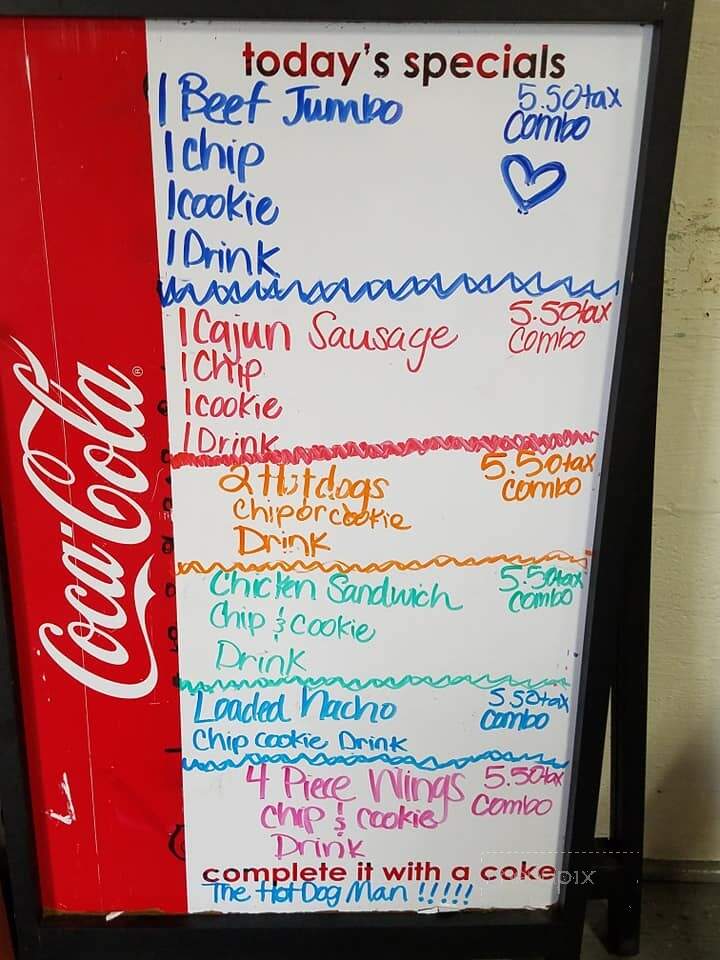 today's specials
1 Beef Jumbo 5.50+tax
1 chip combo
1 cookie
1 Drink
1 Cajun Sausage 5.50+tax
1 Chip combo
1 cookie
1 Drink
2 Hotdogs 5.50+tax
chip or cookie combo
Drink
Chicken Sandwich 5.50+tax
Chip & Cookie combo
Drink
Loaded Nacho 5.50+tax
Chip cookie Drink combo
4 Piece Wings 5.50+tax
chip & cookie combo
Drink
complete it with a coke
The Hot Dog Man !!!!!
Coca-Cola